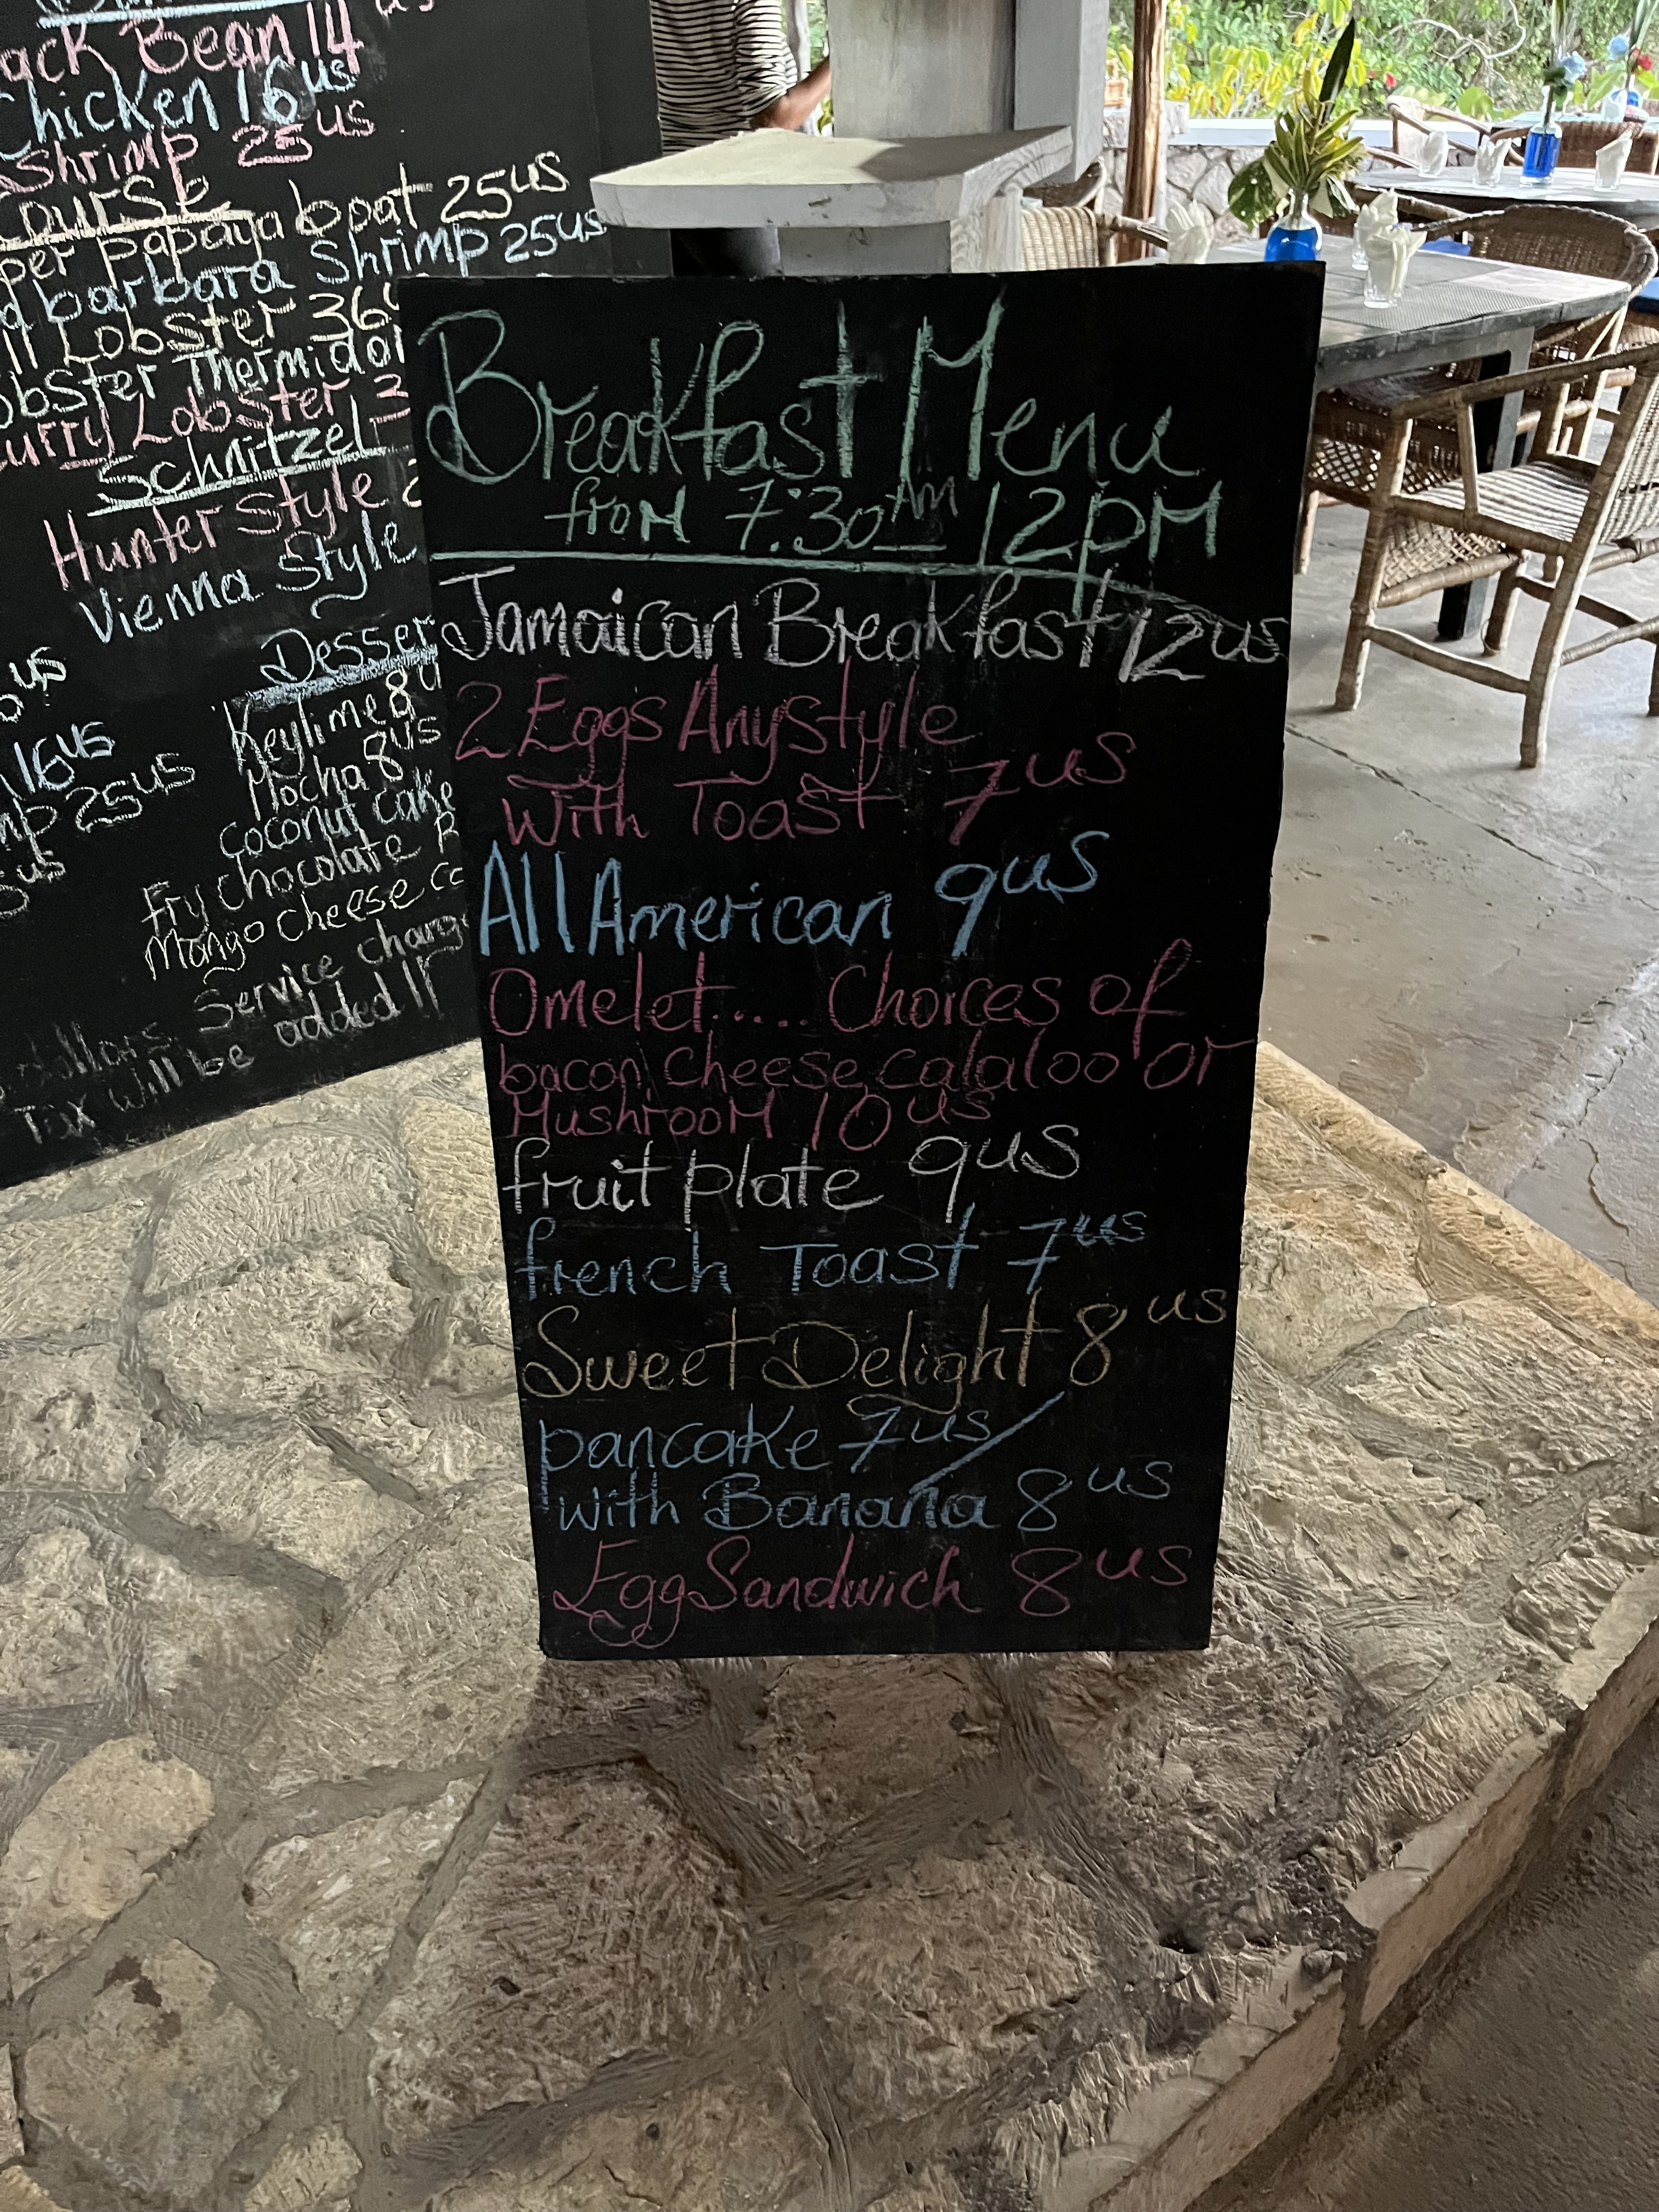 Bean 14 us
Chicken 16 us
Shrimp 25 us
Course
papaya boat 25 us
barbara Shrimp 25 us
Lobster 36
Lobster Thermidor
Curry Lobster 3
Schnitzel
Hunter Style
Vienna Style
us
16 us
25 us
us
Desser
Keylime 8 u
Mocha 8 us
coconut cake
Fry chocolate
Mango cheese
Service charge
dollars
Tax will be added
Breakfast Menu
from 7:30 Am 12 pM
Jamaican Breakfast 12 us
2 Eggs Anystyle
With Toast 7 us
All American 9 us
Omelet..... Choices of
bacon, cheese, calaloo or
Mushroom 10 us
fruit plate 9 us
french Toast 7 us
Sweet Delight 8 us
pancake 7 us /
with Banana 8 us
Egg Sandwich 8 us